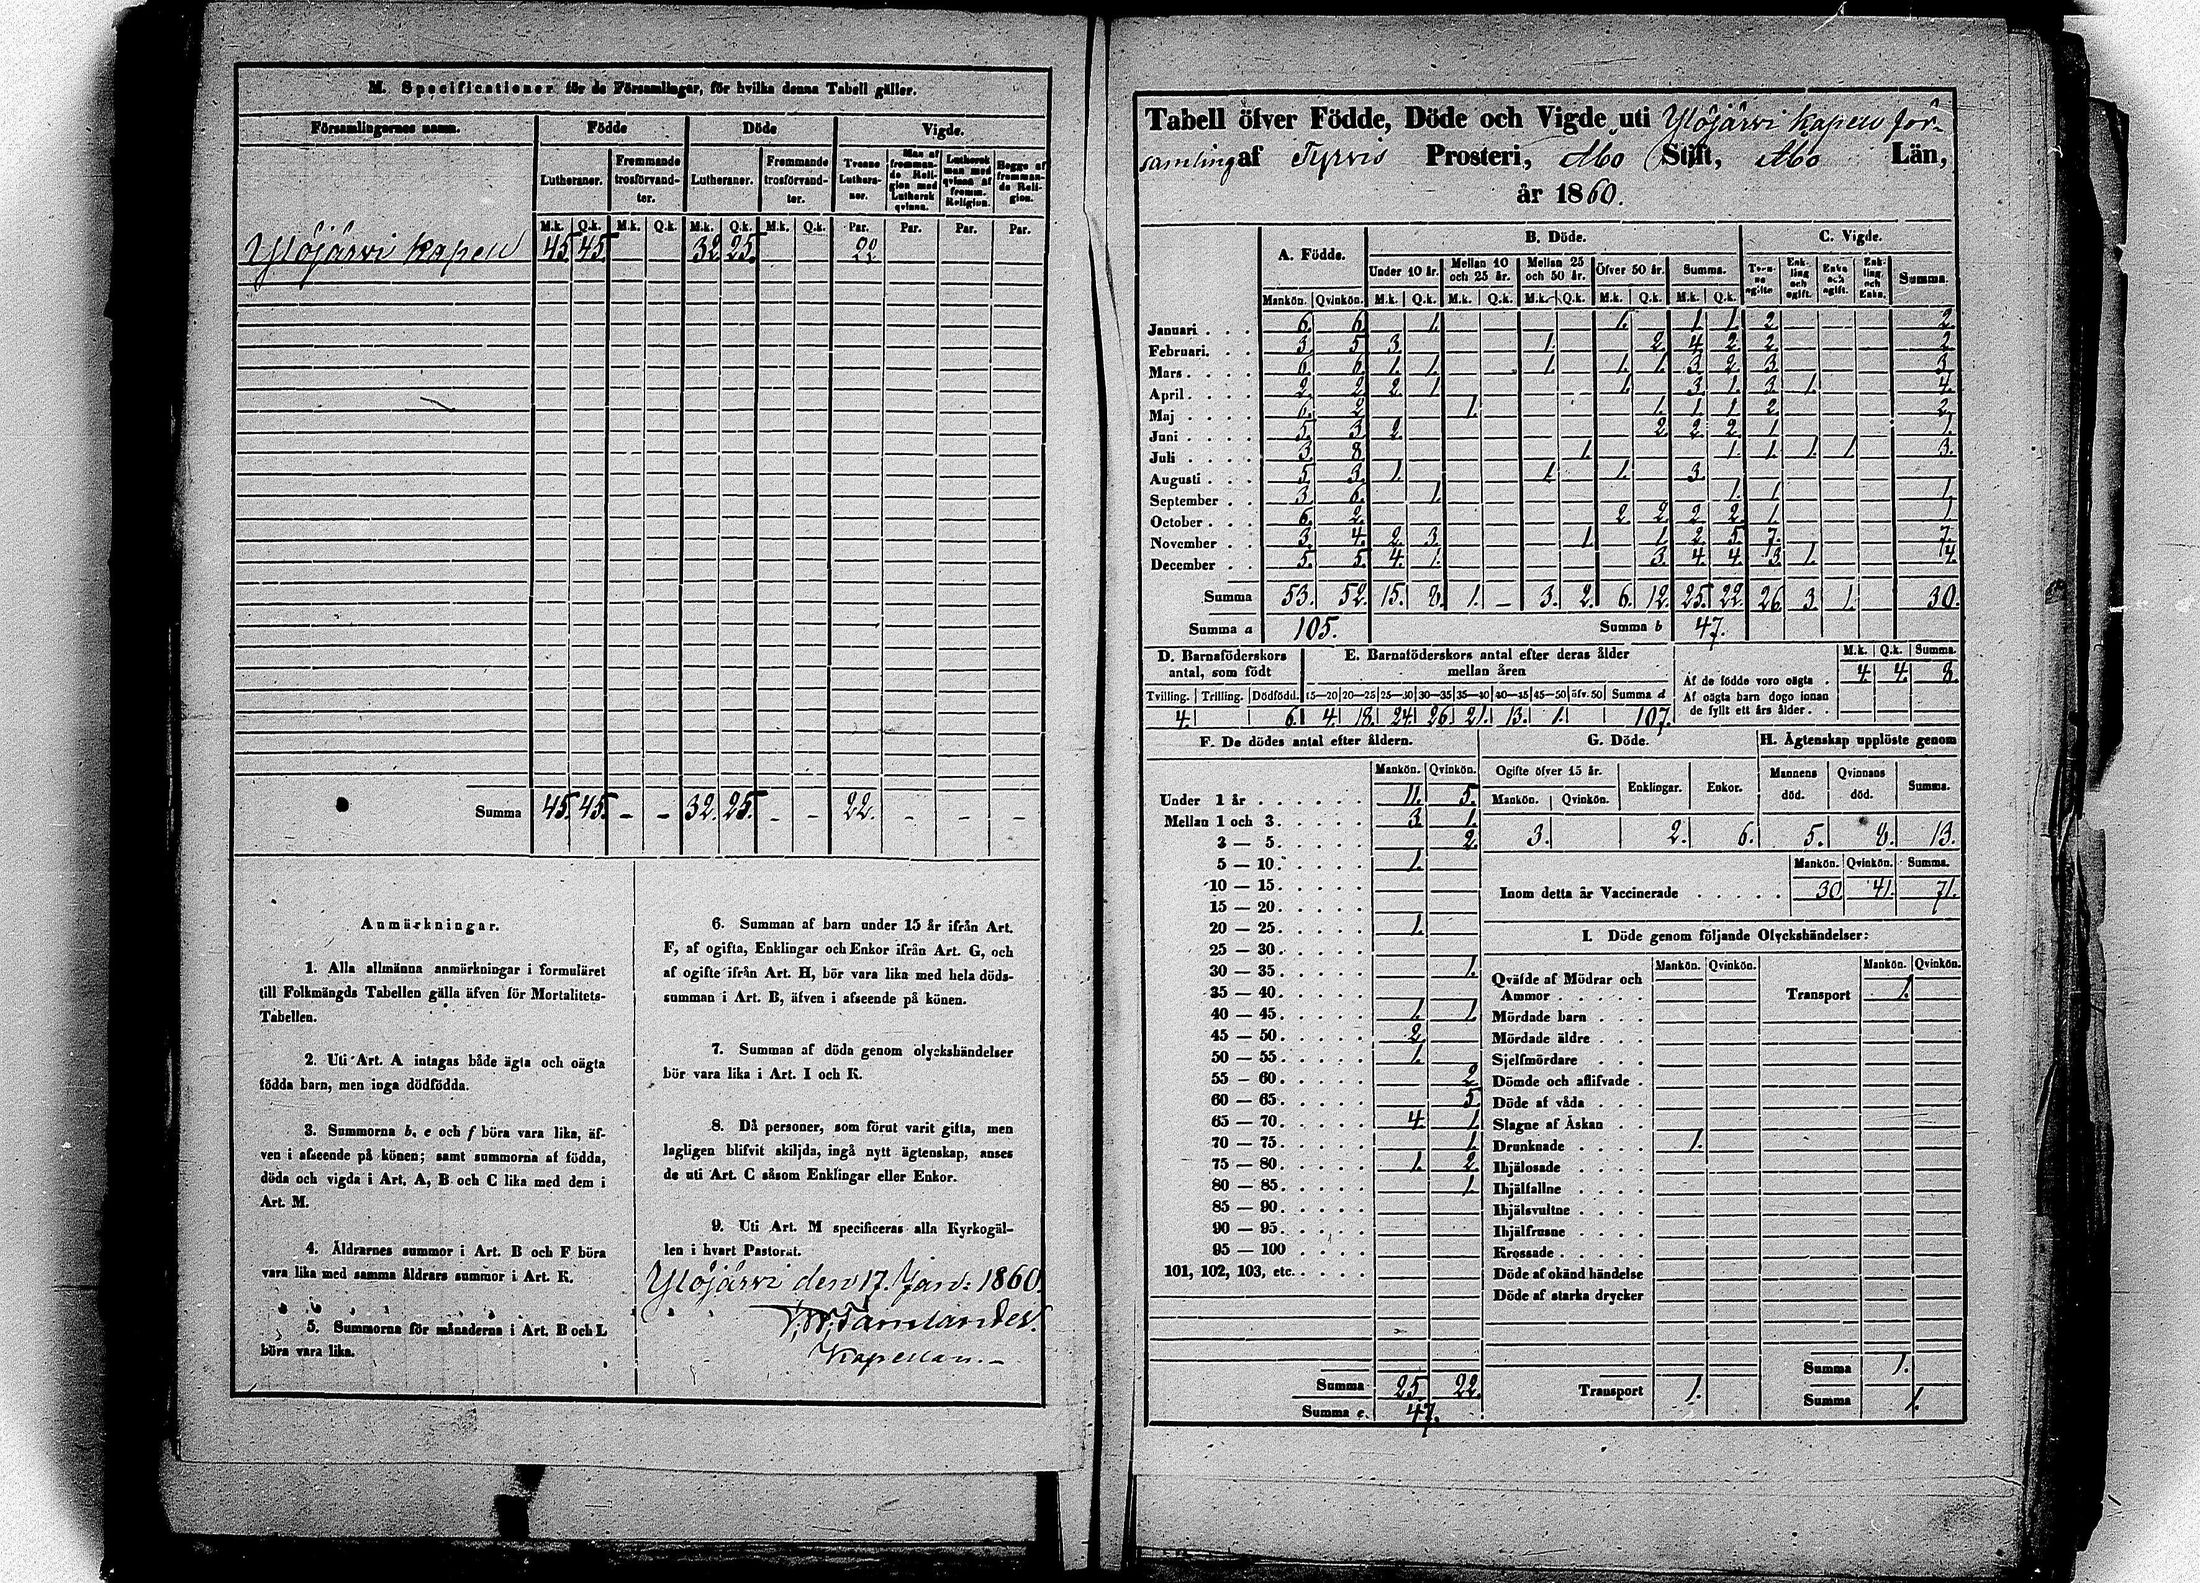 M. Specificationer för de Församlingar, för hvilka denna Tabell gäller.
Församlingarnes namn. Födde Döde Vigde.
Lutheraner. Fremmande trosförvandter. Lutheraner. Fremmande trosförvandter. Tvenne Lutheraner. Man af fremmande Religion med Luthersk qvinna. Luthersk man med qvinna af fremm. Religion. Begge af fremmande Religion.
M.k. Q.k. M.k. Q.k. M.k. Q.k. M.k. Q.k. Par. Par. Par. Par.
Ylöjärvi kapell 45 45 32 25 22
Summa 45. 45. – – 32. 25. – – 22. – – –
Anmärkningar.
1. Alla allmänna anmärkningar i formuläret
till Folkmängds Tabellen gälla äfven för Mortalitets-
Tabellen.
2. Uti Art. A intagas både ägta och oägta
födda barn, men inga dödfödda.
3. Summorna b, e och f böra vara lika, äf-
ven i afseende på könen; samt summorna af födda,
döda och vigda i Art. A, B och C lika med dem i
Art. M.
4. Åldrarnes summor i Art. B och F böra
vara lika med samma åldrars summor i Art. K.
5. Summorna för månaderna i Art. B och L
böra vara lika.
6. Summan af barn under 15 år ifrån Art.
F, af ogifta, Enklingar och Enkor ifrån Art. G, och
af ogifte ifrån Art. H, bör vara lika med hela döds-
summan i Art. B, äfven i afseende på könen.
7. Summan af döda genom olyckshändelser
bör vara lika i Art. I och K.
8. Då personer, som förut varit gifta, men
lagligen blifvit skiljda, ingå nytt ägtenskap, anses
de uti Art. C såsom Enklingar eller Enkor.
9. Uti Art. M specificeras alla Kyrkogäl-
len i hvart Pastorat.
Ylöjärvi den 17. Jan: 1860.
Kapellan.
Tabell öfver Födde, Döde och Vigde uti Ylöjärvi kapell för-
samling af Tyrvis Prosteri, Åbo Stift, Åbo Län,
år 1860.
A. Födde. B. Döde. C. Vigde.
Under 10 år. Mellan 10 och 25 år. Mellan 25 och 50 år. Öfver 50 år. Summa. Tvenne ogifte Enkling och ogift. Enka och ogift. Enkling och Enka. Summa.
Mankön. Qvinkön. M.k. Q.k. M.k. Q.k. M.k. Q.k. M.k. Q.k. M.k. Q.k.
Januari 6. 6. 1. 1. 1. 1. 2. 2.
Februari. 3. 5. 3. 1. 2. 4. 2. 2. 2.
Mars 6. 6. 1. 1. 1. 1. 1. 3. 2. 3. 3.
April 2. 2. 2. 1. 1. 3. 1. 3. 1. 4.
Maj 6. 2. 1. 1. 1. 1. 2. 2.
Juni 5. 3. 2. 2. 2. 2. 1. 1.
Juli 3. 8. 1. 1. 1. 1. 1. 3.
Augusti 5. 3. 1. 1. 1. 3.
September 3. 6. 1. 1. 1. 1.
October 6. 2. 2. 2. 2. 2. 1. 1.
November 3. 4. 2. 3. 1. 1. 2. 5. 7. 7.
December 5. 5. 4. 1. 3. 4. 4. 3. 1. 4.
Summa 53. 52. 15. 8. 1. – 3. 2. 6. 12. 25. 22. 26. 3. 1. 30.
Summa a 105. Summa b 47.
D. Barnaföderskors antal, som födt
Tvilling. Trilling. Dödfödd.
4. 6.
E. Barnaföderskors antal efter deras ålder mellan åren
15—20 20—25 25—30 30—35 35—40 40—45 45—50 öfv. 50 Summa d
4. 18. 24. 26. 21. 13. 1. 107.
M.k. Q.k. Summa.
Af de födde voro oägta 4. 4. 8.
Af oägta barn dogo innan
de fyllt ett års ålder
F. De dödes antal efter åldern.
Mankön. Qvinkön.
Under 1 år 11. 5.
Mellan 1 och 3. 3. 1.
3 — 5. 2.
5 — 10. 1.
10 — 15.
15 — 20.
20 — 25. 1.
25 — 30.
30 — 35. 1.
35 — 40.
40 — 45. 1. 1.
45 — 50. 2.
50 — 55. 1.
55 — 60. 2.
60 — 65. 5.
65 — 70. 4. 1.
70 — 75. 1.
75 — 80. 1. 2.
80 — 85. 1.
85 — 90.
90 — 95.
95 — 100
101, 102, 103, etc.
Summa 25 22.
Summa e. 47.
G. Döde.
Ogifte öfver 15 år. Enklingar. Enkor.
Mankön. Qvinkön.
3. 2. 6.
H. Ägtenskap upplöste genom
Mannens död. Qvinnans död. Summa.
5. 8. 13.
Mankön. Qvinkön. Summa.
Inom detta år Vaccinerade 30 41. 71.
I. Döde genom följande Olyckshändelser:
Mankön. Qvinkön. Mankön. Qvinkön.
Qväfde af Mödrar och
Ammor
Mördade barn
Mördade äldre
Sjelfmördare
Dömde och aflifvade
Döde af våda
Slagne af Åskan
Drunknade 1.
Ihjälosade
Ihjälfallne
Ihjälsvultne
Ihjälfrusne
Krossade
Döde af okänd händelse
Döde af starka drycker
Transport 1.
Transport 1.
Summa 1.
Summa 1.